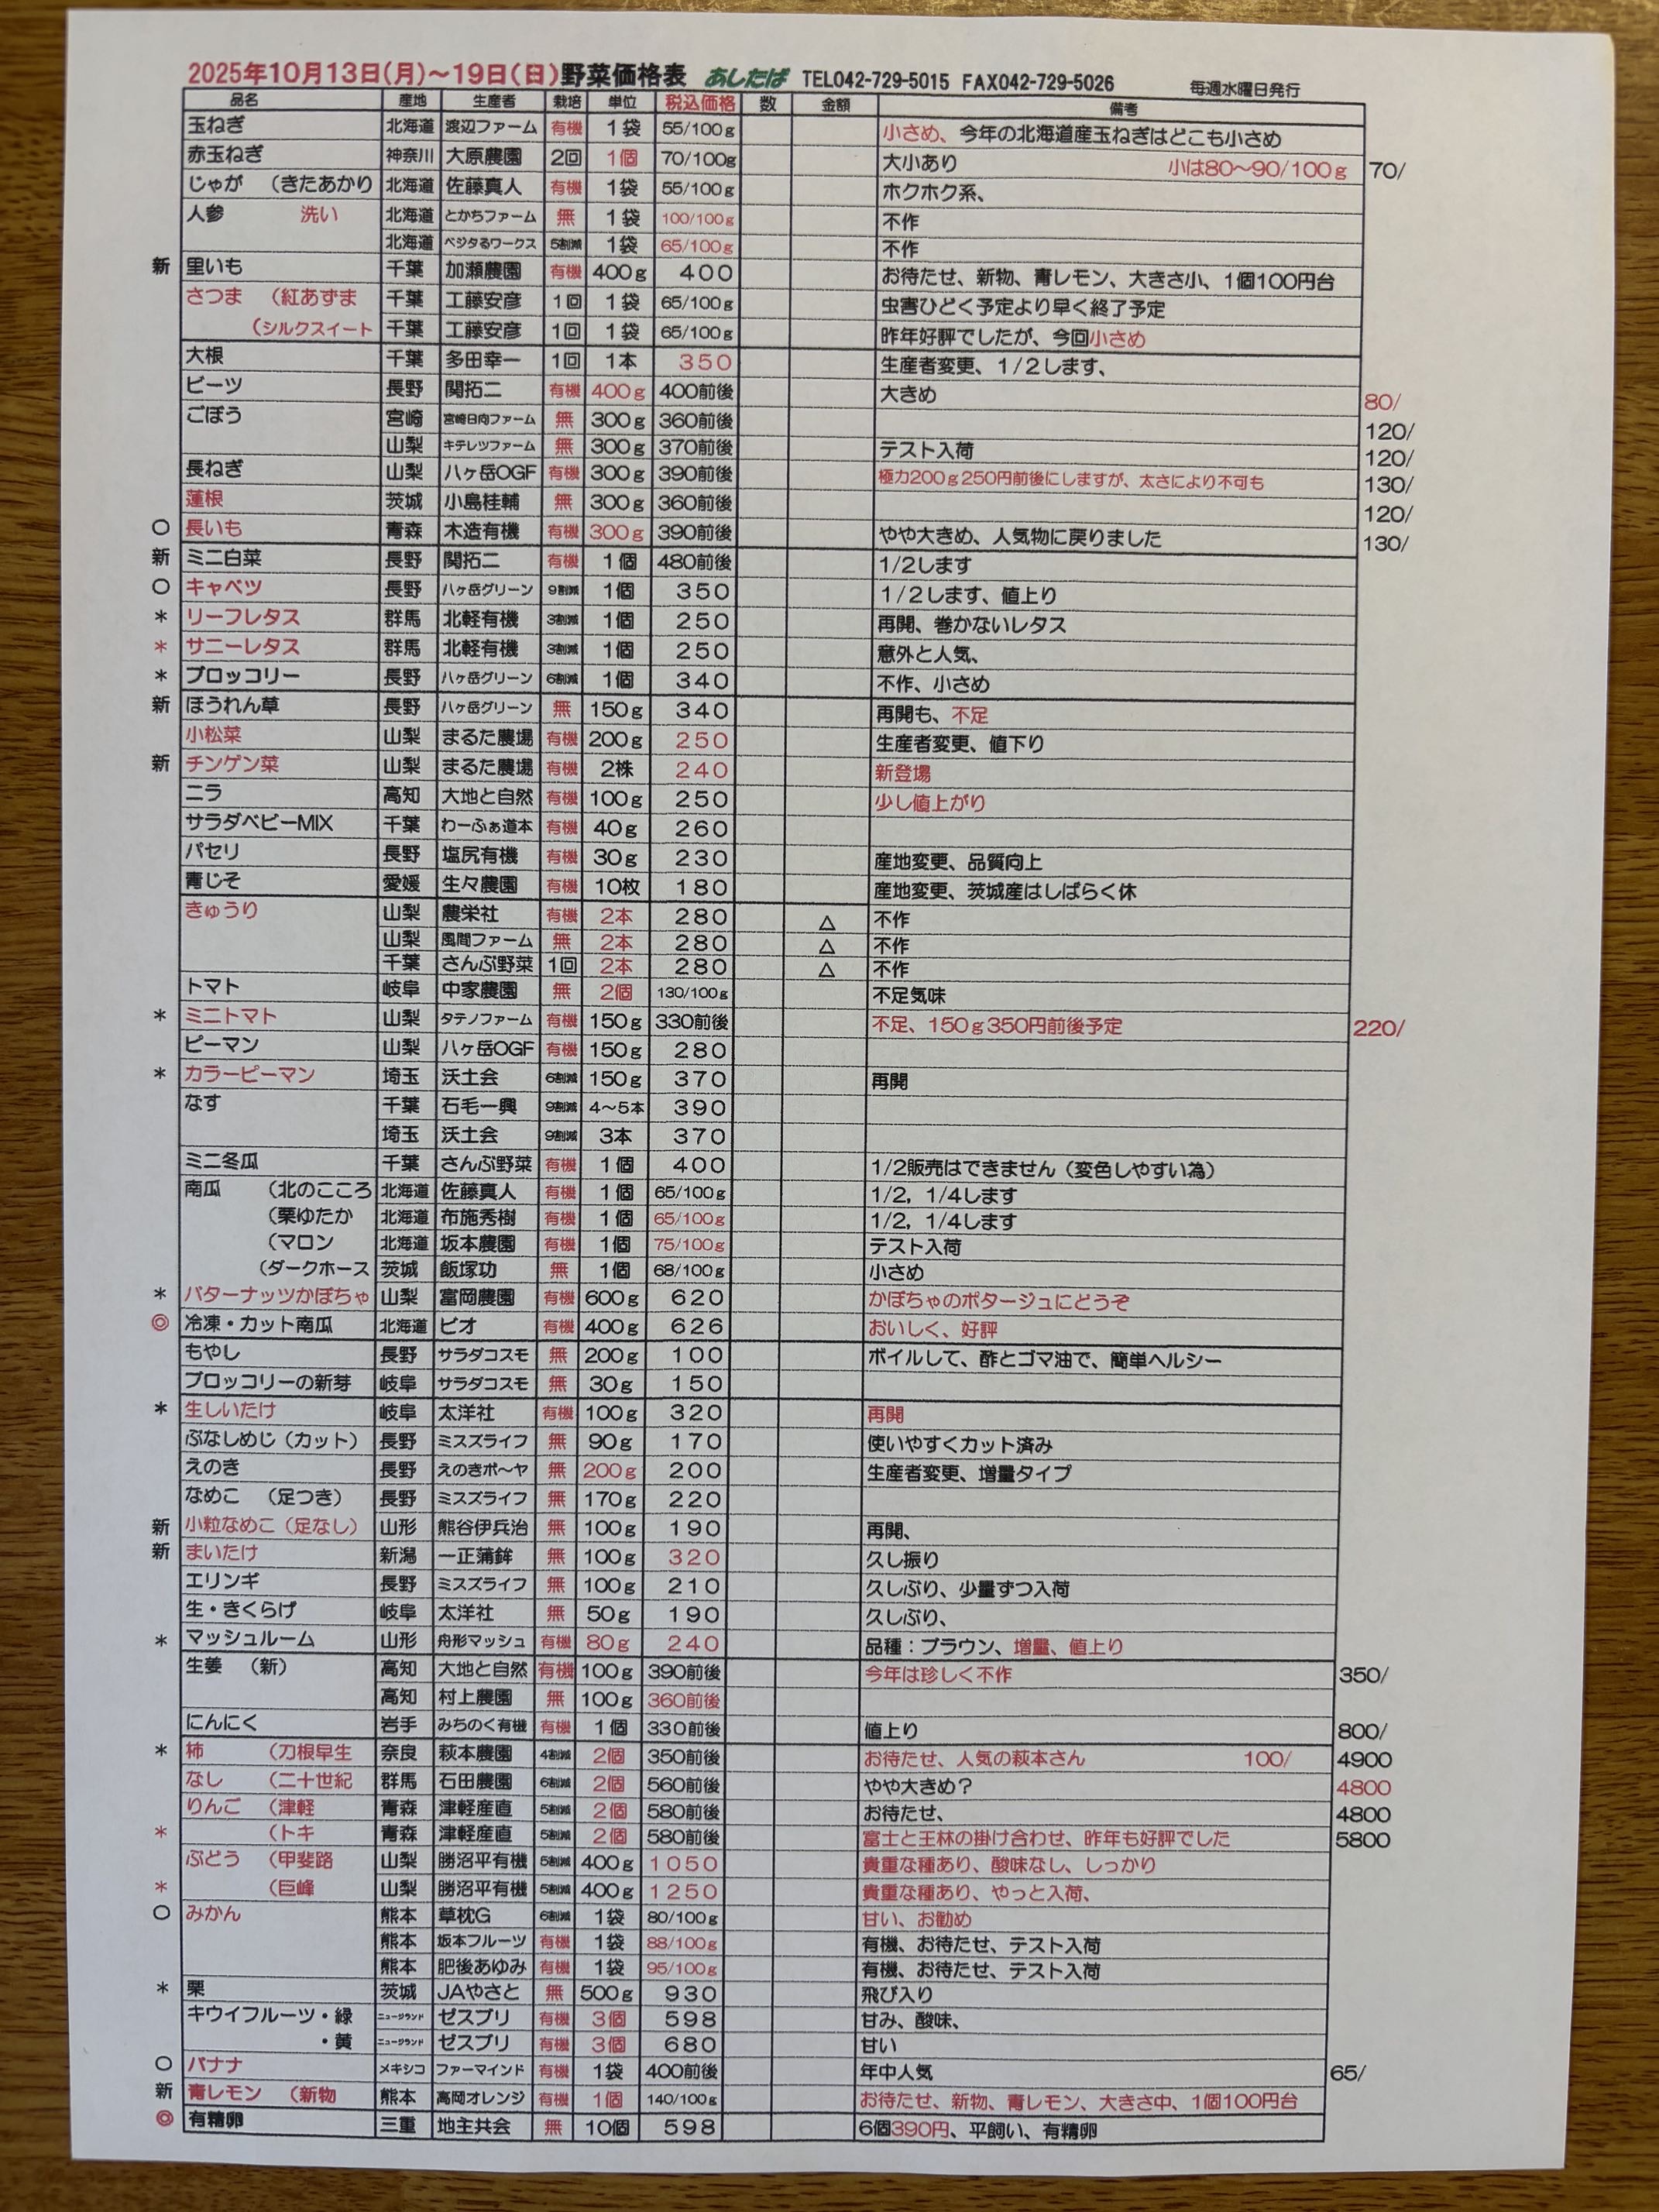 2025年10月13日(月)～19日(日)野菜価格表 あしたば TEL042-729-5015 FAX042-729-5026 毎週水曜日発行
品名 産地 生産者 栽培 単位 税込価格 数 金額 備考
玉ねぎ 北海道 渡辺ファーム 有機 1袋 55/100g 小さめ、今年の北海道産玉ねぎはどこも小さめ
赤玉ねぎ 神奈川 大原農園 2回 1個 70/100g 大小あり 小は80～90/100g 70/
じゃが （きたあかり 北海道 佐藤真人 有機 1袋 55/100g ホクホク系、
人参 洗い 北海道 とかちファーム 無 1袋 100/100g 不作
北海道 ベジタるワークス 5割減 1袋 65/100g 不作
新 里いも 千葉 加瀬農園 有機 400g 400 お待たせ、新物、青レモン、大きさ小、1個100円台
さつま （紅あずま 千葉 工藤安彦 1回 1袋 65/100g 虫害ひどく予定より早く終了予定
（シルクスイート 千葉 工藤安彦 1回 1袋 65/100g 昨年好評でしたが、今回小さめ
大根 千葉 多田幸一 1回 1本 350 生産者変更、1/2します、
ビーツ 長野 関拓二 有機 400g 400前後 大きめ 80/
ごぼう 宮崎 宮崎日向ファーム 無 300g 360前後 120/
山梨 キテレツファーム 無 300g 370前後 テスト入荷 120/
長ねぎ 山梨 八ヶ岳OGF 有機 300g 390前後 極力200g250円前後にしますが、太さにより不可も 130/
蓮根 茨城 小島桂輔 無 300g 360前後 120/
○ 長いも 青森 木造有機 有機 300g 390前後 やや大きめ、人気物に戻りました 130/
新 ミニ白菜 長野 関拓二 有機 1個 480前後 1/2します
○ キャベツ 長野 八ヶ岳グリーン 9割減 1個 350 1/2します、値上り
* リーフレタス 群馬 北軽有機 3割減 1個 250 再開、巻かないレタス
* サニーレタス 群馬 北軽有機 3割減 1個 250 意外と人気、
* ブロッコリー 長野 八ヶ岳グリーン 6割減 1個 340 不作、小さめ
新 ほうれん草 長野 八ヶ岳グリーン 無 150g 340 再開も、不足
小松菜 山梨 まるた農場 有機 200g 250 生産者変更、値下り
新 チンゲン菜 山梨 まるた農場 有機 2株 240 新登場
ニラ 高知 大地と自然 有機 100g 250 少し値上がり
サラダベビーMIX 千葉 わーふぁ道本 有機 40g 260
パセリ 長野 塩尻有機 有機 30g 230 産地変更、品質向上
青じそ 愛媛 生々農園 有機 10枚 180 産地変更、茨城産はしばらく休
きゅうり 山梨 農栄社 有機 2本 280 △ 不作
山梨 風間ファーム 無 2本 280 △ 不作
千葉 さんぶ野菜 1回 2本 280 △ 不作
トマト 岐阜 中家農園 無 2個 130/100g 不足気味
* ミニトマト 山梨 タテノファーム 有機 150g 330前後 不足、150g350円前後予定 220/
ピーマン 山梨 八ヶ岳OGF 有機 150g 280
* カラーピーマン 埼玉 沃土会 6割減 150g 370 再開
なす 千葉 石毛一興 9割減 4～5本 390
埼玉 沃土会 9割減 3本 370
ミニ冬瓜 千葉 さんぶ野菜 有機 1個 400 1/2販売はできません（変色しやすい為）
南瓜 （北のこころ 北海道 佐藤真人 有機 1個 65/100g 1/2，1/4します
（栗ゆたか 北海道 布施秀樹 有機 1個 65/100g 1/2，1/4します
（マロン 北海道 坂本農園 有機 1個 75/100g テスト入荷
（ダークホース 茨城 飯塚功 無 1個 68/100g 小さめ
* バターナッツかぼちゃ 山梨 富岡農園 有機 600g 620 かぼちゃのポタージュにどうぞ
◎ 冷凍・カット南瓜 北海道 ビオ 有機 400g 626 おいしく、好評
もやし 長野 サラダコスモ 無 200g 100 ボイルして、酢とゴマ油で、簡単ヘルシー
ブロッコリーの新芽 岐阜 サラダコスモ 無 30g 150
* 生しいたけ 岐阜 太洋社 有機 100g 320 再開
ぶなしめじ（カット） 長野 ミスズライフ 無 90g 170 使いやすくカット済み
えのき 長野 えのきボ～ヤ 無 200g 200 生産者変更、増量タイプ
なめこ （足つき） 長野 ミスズライフ 無 170g 220
新 小粒なめこ（足なし） 山形 熊谷伊兵治 無 100g 190 再開、
新 まいたけ 新潟 一正蒲鉾 無 100g 320 久し振り
エリンギ 長野 ミスズライフ 無 100g 210 久しぶり、少量ずつ入荷
生・きくらげ 岐阜 太洋社 無 50g 190 久しぶり、
* マッシュルーム 山形 舟形マッシュ 有機 80g 240 品種：ブラウン、増量、値上り
生姜 （新） 高知 大地と自然 有機 100g 390前後 今年は珍しく不作 350/
高知 村上農園 無 100g 360前後
にんにく 岩手 みちのく有機 有機 1個 330前後 値上り 800/
* 柿 （刀根早生 奈良 萩本農園 4割減 2個 350前後 お待たせ、人気の萩本さん 100/ 4900
なし （二十世紀 群馬 石田農園 6割減 2個 560前後 やや大きめ？ 4800
りんご （津軽 青森 津軽産直 5割減 2個 580前後 お待たせ、 4800
* （トキ 青森 津軽産直 5割減 2個 580前後 富士と王林の掛け合わせ、昨年も好評でした 5800
ぶどう （甲斐路 山梨 勝沼平有機 5割減 400g 1050 貴重な種あり、酸味なし、しっかり
* （巨峰 山梨 勝沼平有機 5割減 400g 1250 貴重な種あり、やっと入荷、
○ みかん 熊本 草枕G 6割減 1袋 80/100g 甘い、お勧め
熊本 坂本フルーツ 有機 1袋 88/100g 有機、お待たせ、テスト入荷
熊本 肥後あゆみ 有機 1袋 95/100g 有機、お待たせ、テスト入荷
* 栗 茨城 JAやさと 無 500g 930 飛び入り
キウイフルーツ・緑 ニュージランド ゼスプリ 有機 3個 598 甘み、酸味、
・黄 ニュージランド ゼスプリ 有機 3個 680 甘い
○ バナナ メキシコ ファーマインド 有機 1袋 400前後 年中人気 65/
新 青レモン （新物 熊本 高岡オレンジ 有機 1個 140/100g お待たせ、新物、青レモン、大きさ中、1個100円台
◎ 有精卵 三重 地主共会 無 10個 598 6個390円、平飼い、有精卵